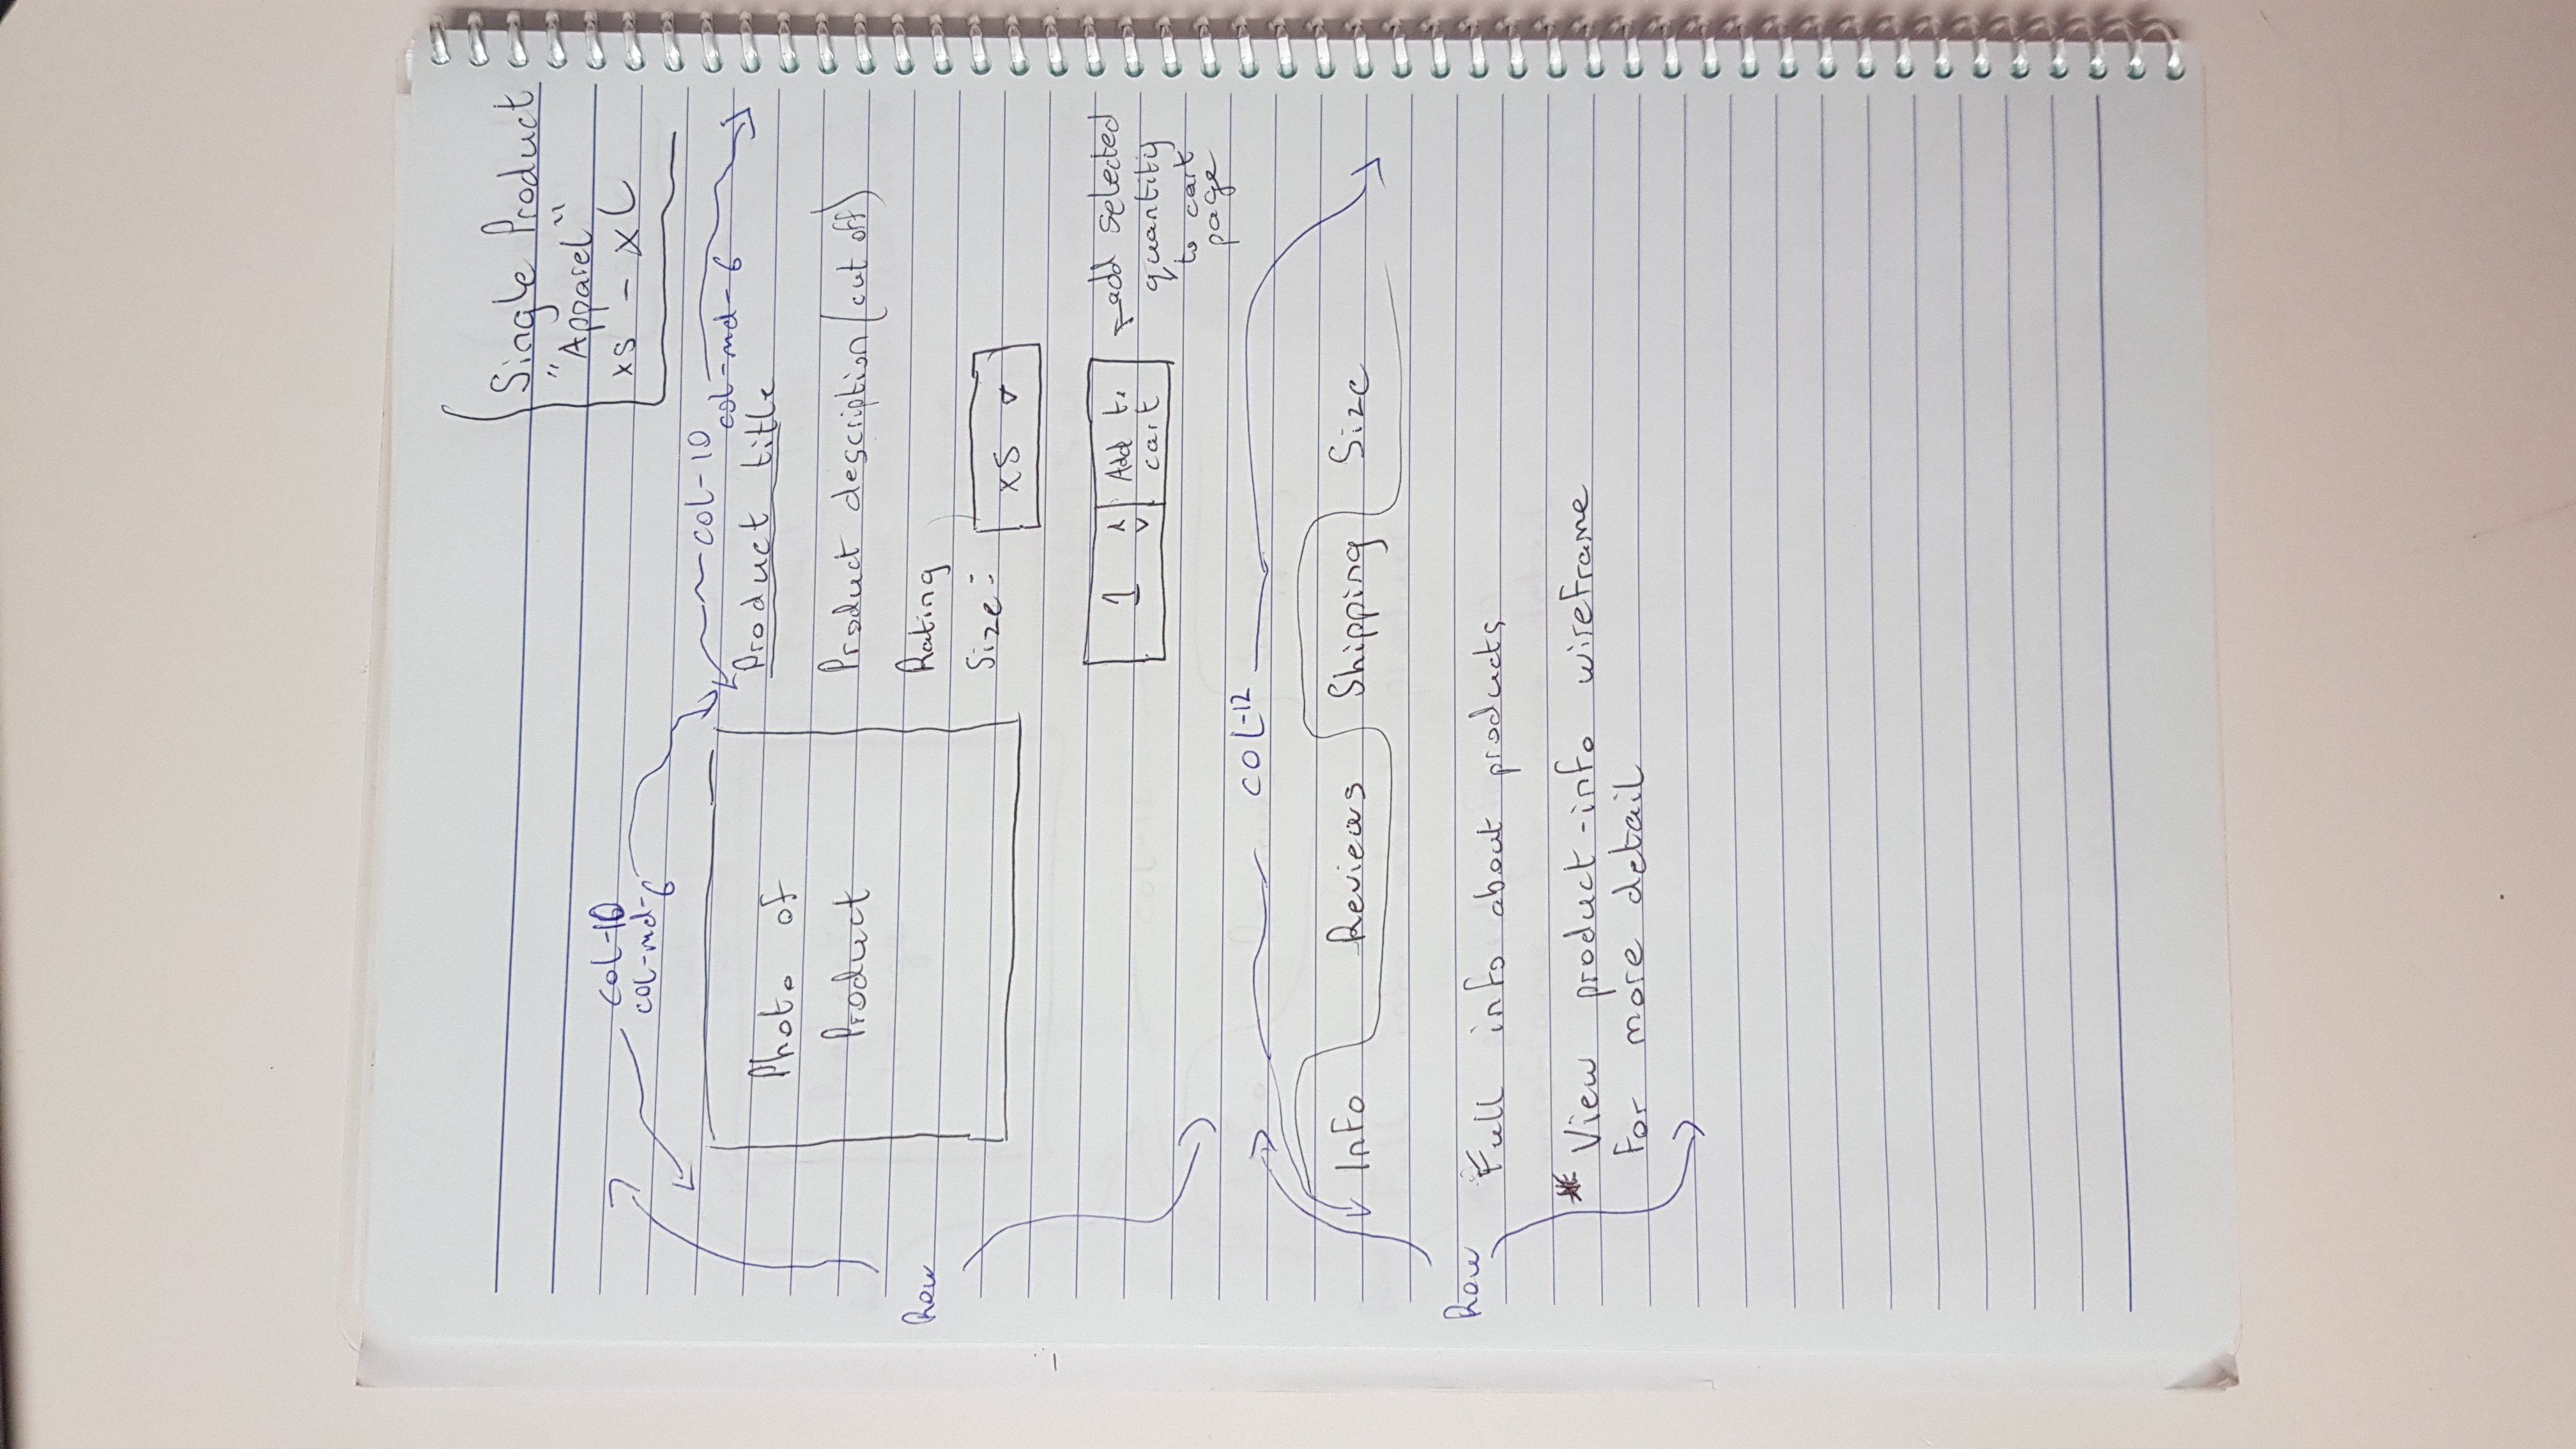 Single Product
"Apparel"
XS - XL
col-10
col-md-6
col-10
col-md-6
Photo of
Product
Product title
Product description (cut off)
Rating
Size: XS
Row
1 Add to
cart
add selected
quantity
to cart
page
col-12
Info Reviews Shipping Size
Row
Full info about products
* View product-info wireframe
for more detail